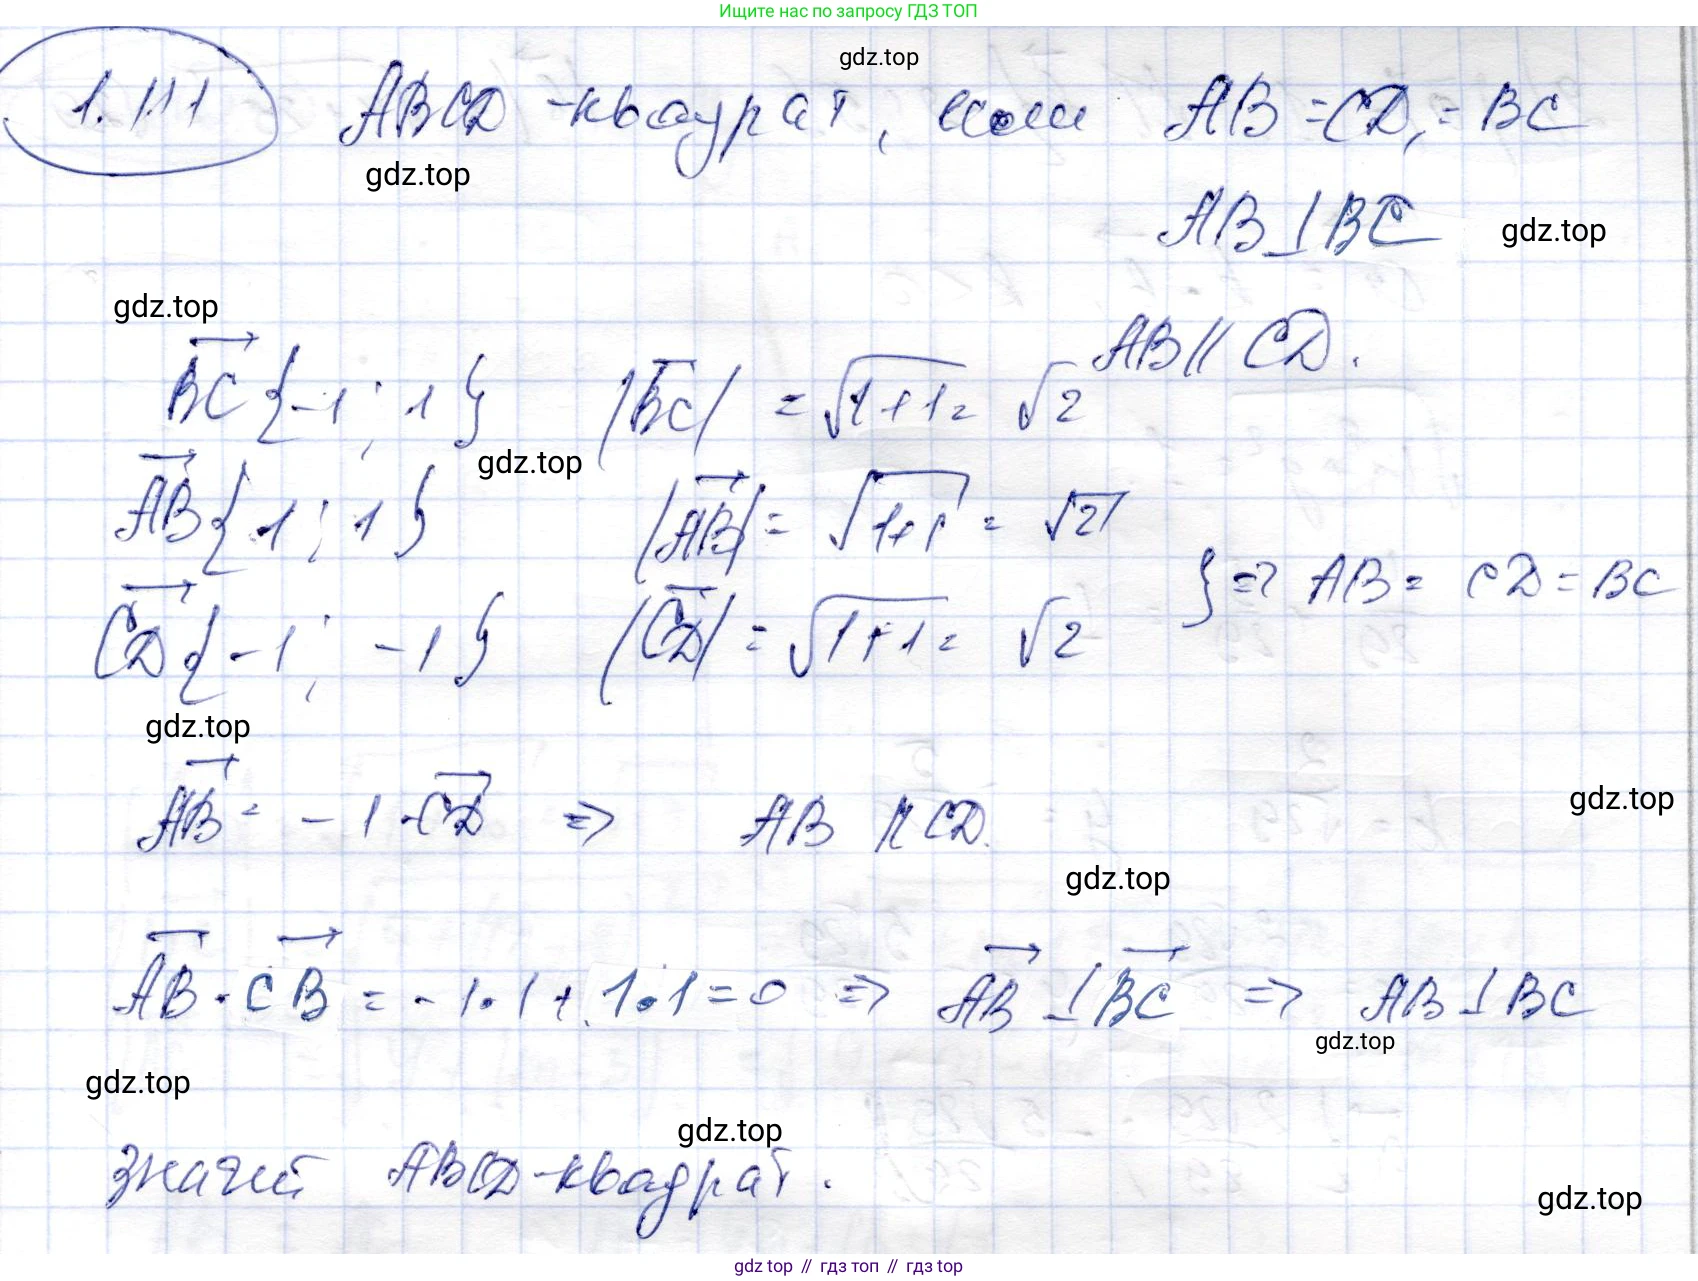 Ищите нас по запросу ГДЗ ТОП
gdz.top
1.111 ABCD - квадрат, если AB = CD, = BC
gdz.top
AB ⊥ BC gdz.top
gdz.top
AB || CD.
BC {-1; 1} |BC| = √1+1 = √2
gdz.top
AB {1; 1} |AB| = √1+1 = √2
} => AB = CD = BC
CD {-1; -1} |CD| = √1+1 = √2
gdz.top
AB = -1 · CD => AB || CD.
gdz.top
gdz.top
AB · CB = -1·1 + 1·1 = 0 => AB ⊥ BC => AB ⊥ BC
gdz.top
gdz.top
gdz.top
значит ABCD - квадрат.
gdz.top
gdz top // гдз топ // гдз top